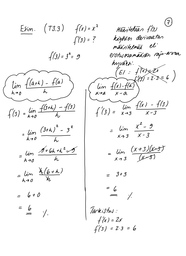 7
Esim. (733) f(x) = x²
f'(3) = ?
f(3) = 3² = 9
Määritetään f'(3)
käyttäen derivaatan
määritelmää eli
erotusosamäärän raja-arvon
avulla
(EI: f'(x) = 2x
f'(3) = 2·3 = 6)
lim h→0 f(a+h) - f(a) / h
f'(3) = lim h→0 f(3+h) - f(3) / h
= lim h→0 (3+h)² - 3² / h
= lim h→0 9 + 6h + h² - 9 / h
= lim h→0 h(6+h) / h
= 6 + 0
= 6
lim x→a f(x) - f(a) / x - a
f'(3) = lim x→3 f(x) - f(3) / x - 3
= lim x→3 x² - 9 / x - 3
= lim x→3 (x+3)(x-3) / (x-3)
= 3 + 3
= 6
Tarkistus:
f'(x) = 2x
f'(3) = 2·3 = 6